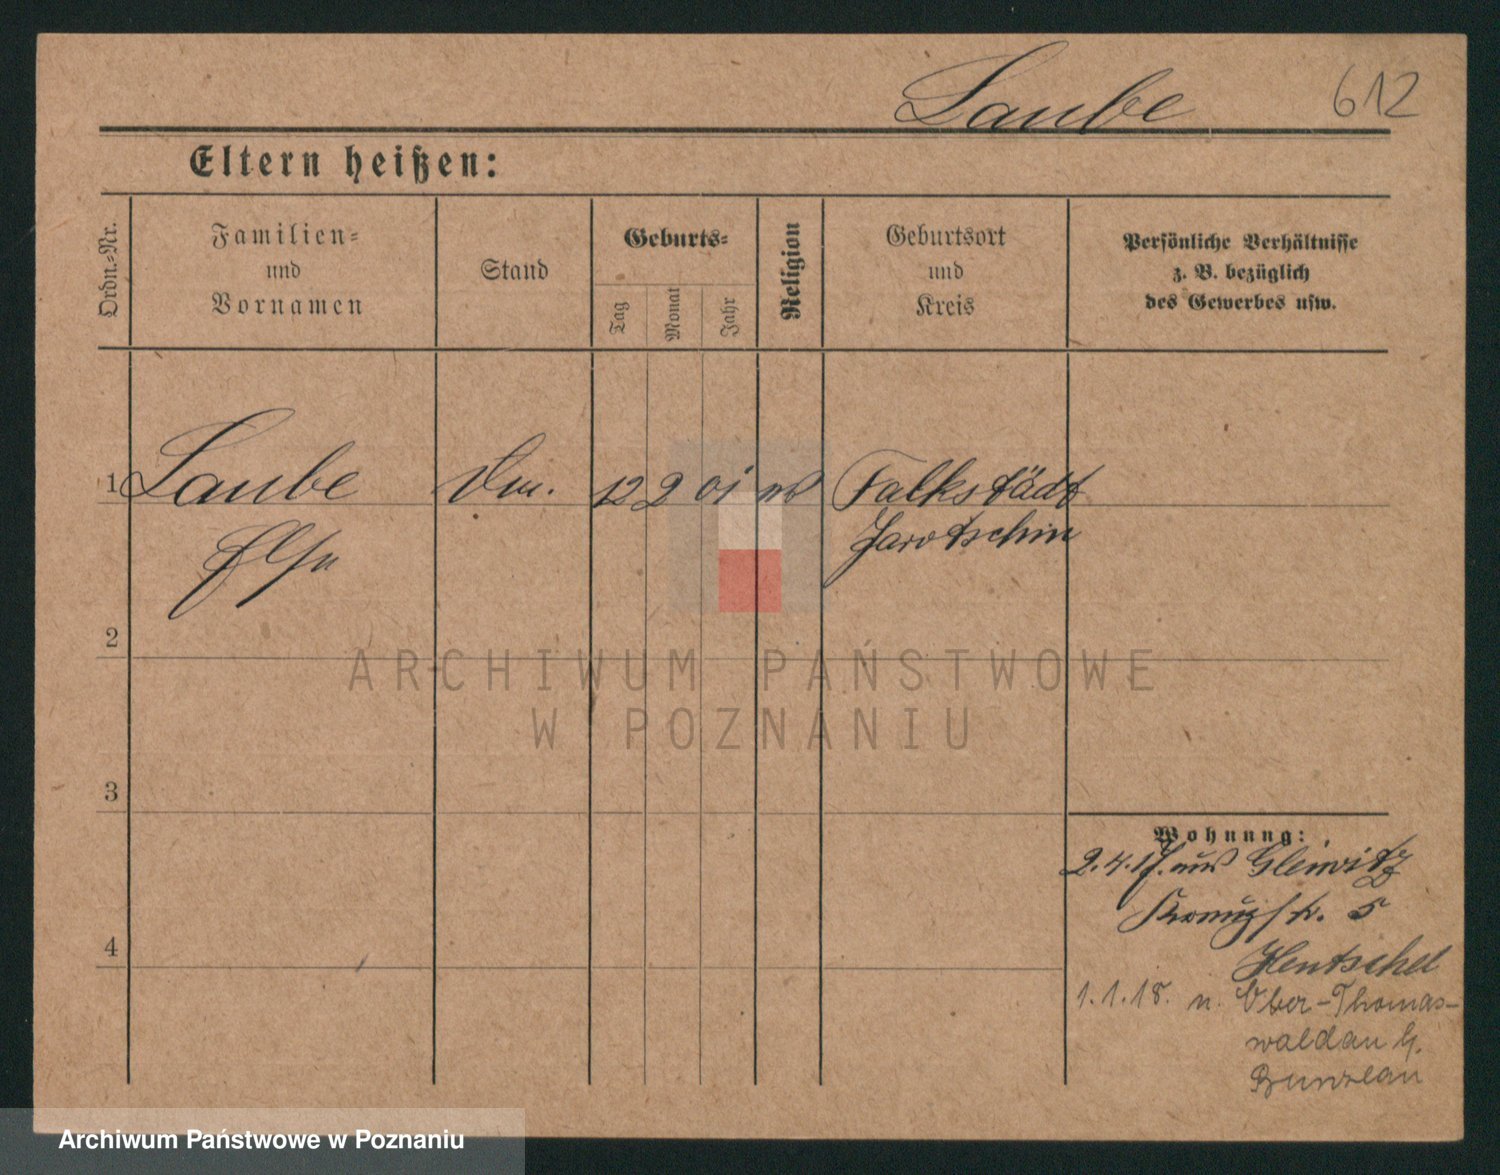 Laube 612
Eltern heißen:
Ordn.-Nr.
Familien-
und
Vornamen
Stand
Geburts-
Tag
Monat
Jahr
Religion
Geburtsort
und
Kreis
Persönliche Verhältnisse
z. B. bezüglich
des Gewerbes usw.
1 Laube 12 2 01 Falkstädt
Jarotschin
2
3
4
ARCHIWUM PAŃSTWOWE
W POZNANIU
Wohnung:
2.4.17. aus Gleiwitz
5
Hentschel
1.1.18. n. Ober-Thomas-
waldau b.
Bunzlau
Archiwum Państwowe w Poznaniu